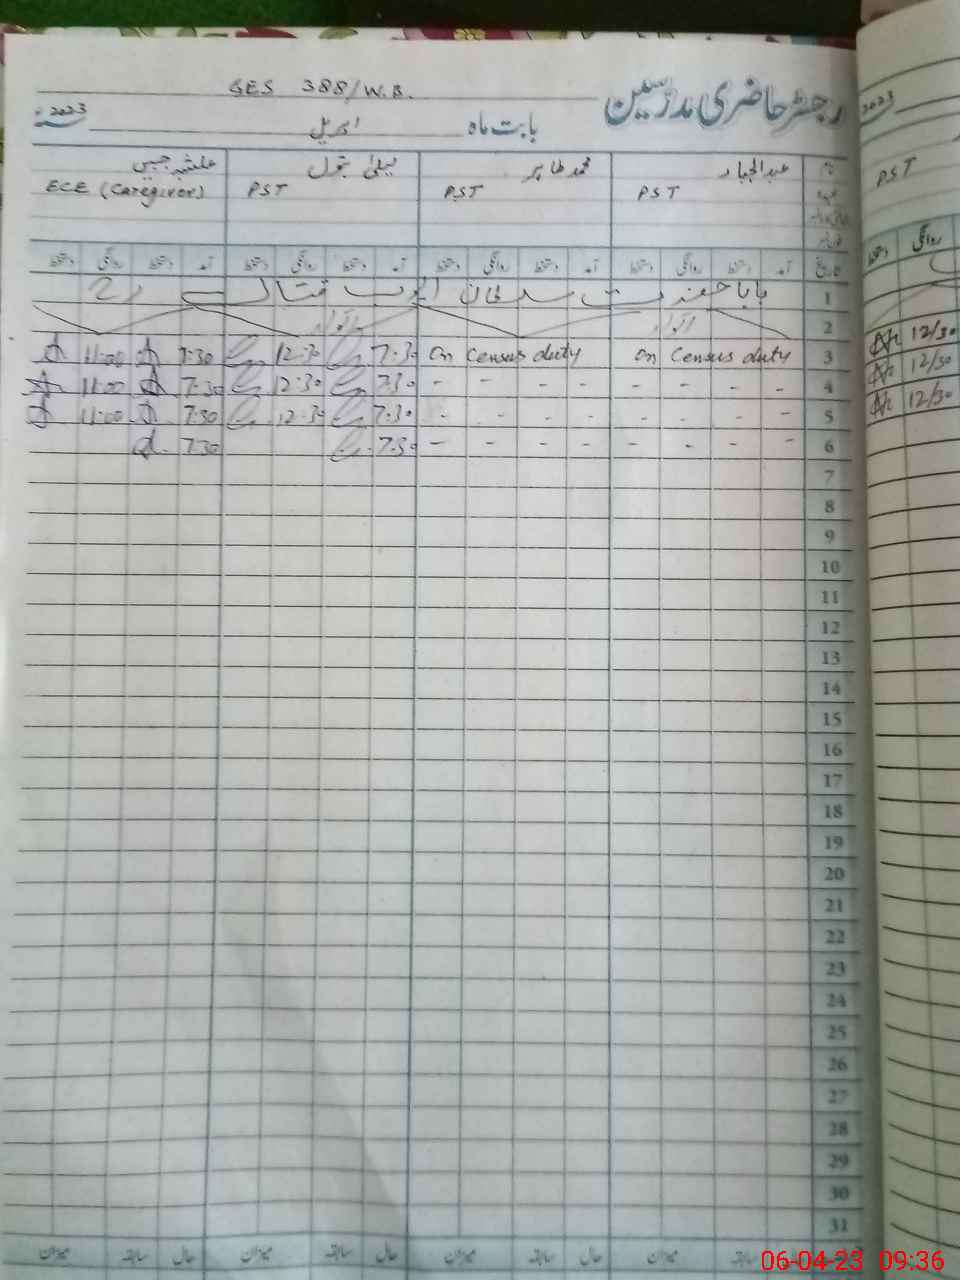 GES 388/W.B.
رجسٹر حاضری مدرسین
بابت ماہ اپریل 2023
نام عبدالجبار محمد طاہر جبیں
عہدہ PST PST PST ECE (Caregiver)
تاریخ آمد دستخط روانگی دستخط آمد دستخط روانگی دستخط آمد دستخط روانگی دستخط آمد دستخط روانگی دستخط
1 بابا حضرت سلطان ایوب قتال
2 اتوار اتوار
3 on Census duty On Census duty 7:30 12:30 7:30 11:00
4 - - - - - - - - 7:30 12:30 7:30 11:00
5 - - - - - - - - 7:30 12:30 7:30 11:00
6 - - - - - - - - 7:30 7:30
7
8
9
10
11
12
13
14
15
16
17
18
19
20
21
22
23
24
25
26
27
28
29
30
31
سابقہ میزان حال سابقہ میزان حال سابقہ میزان حال سابقہ میزان
2023
PST
روانگی دستخط
12/30
12/30
12/30
06-04-23 09:36